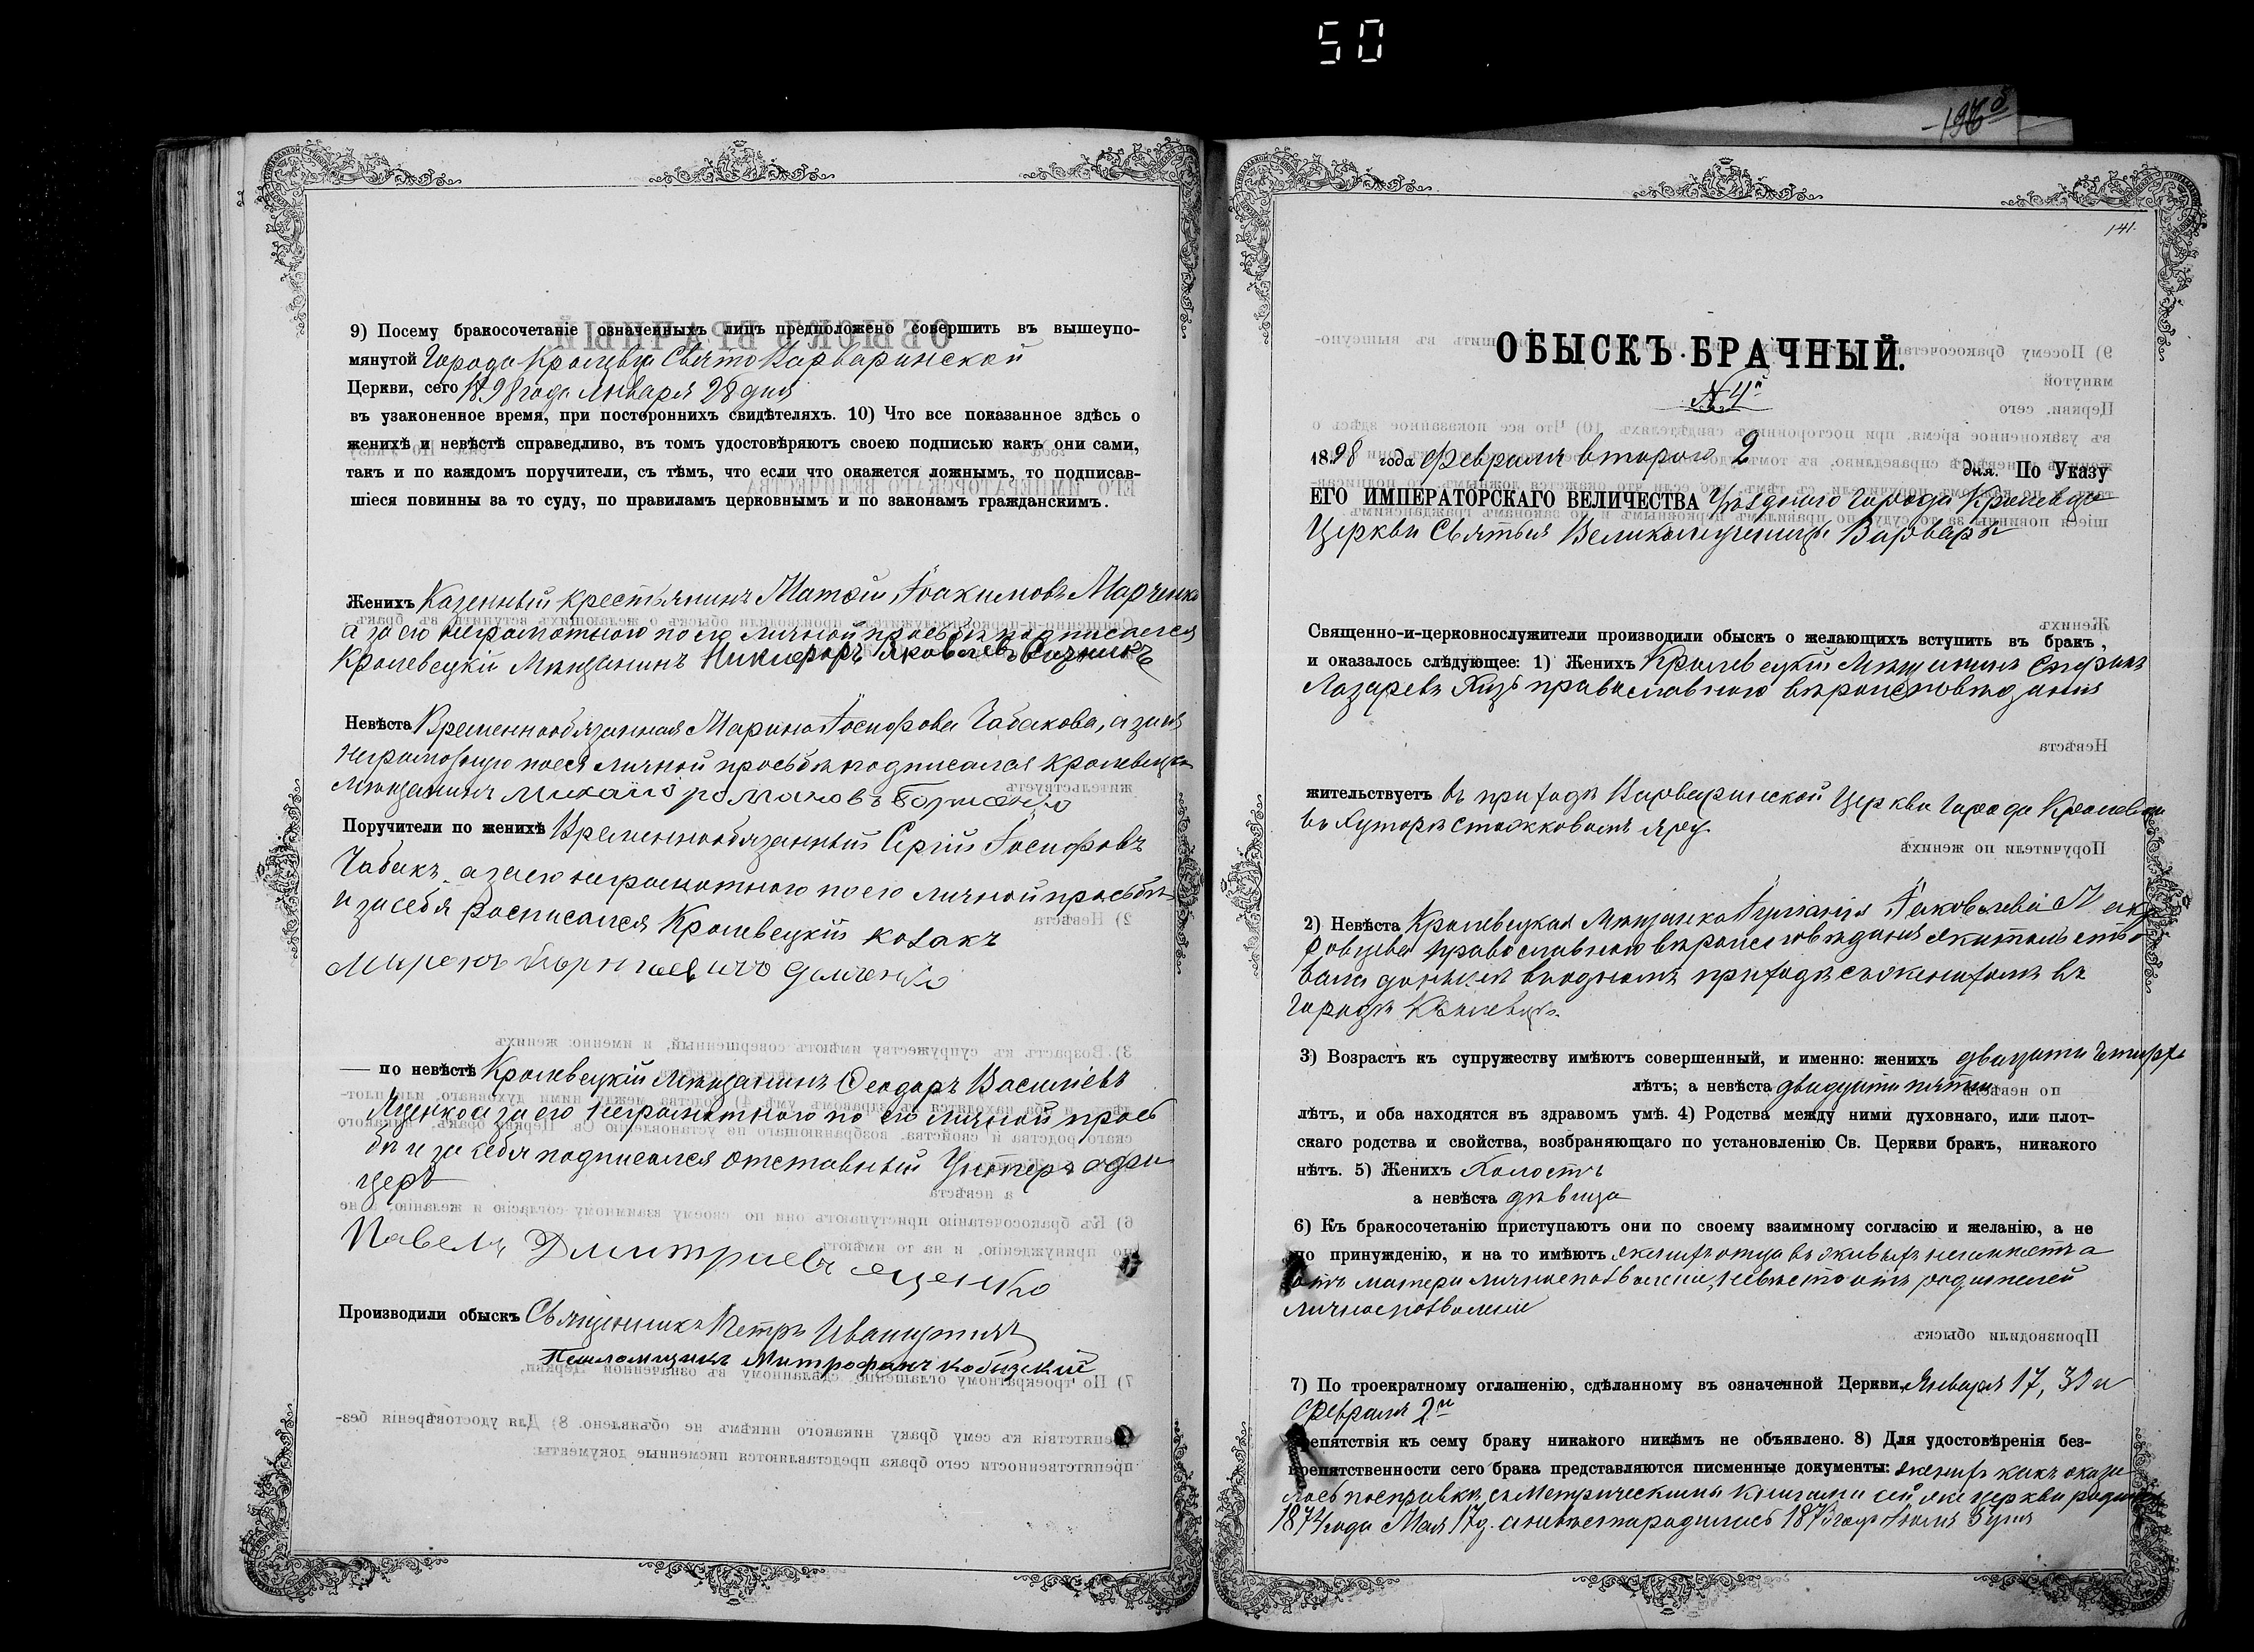 50
196
9) Посему бракосочетаніе означенныхъ лицъ предположено совершить въ вышеупо-
мянутой Города Кролевца СвятоВарваринской
Церкви, сего 1898 года Января 28 дня
въ узаконенное время, при постороннихъ свидѣтеляхъ. 10) Что все показанное здѣсь о
женихѣ и невѣстѣ справедливо, въ томъ удостовѣряютъ своею подписью какъ они сами,
такъ и по каждомъ поручители, съ тѣмъ, что если что окажется ложнымъ, то подписав-
шіеся повинны за то суду, по правиламъ церковнымъ и по законамъ гражданскимъ.
Женихъ Казенный крестьянинъ Матѳій Іоакимовъ Марченко
а за его неграмотного по его личной просьбѣ подписался
Кролевецкій Мѣщанинъ Никифоръ Яковлевъ
Невѣста Временнообязанная Марина Іосифова Чабакова, а за ея
неграмотную по ея личной просьбѣ подписался Кролевецкій
Мѣщанинъ Михаилъ романовъ
Поручители по женихѣ Временнообязанный Сергій Іосифовъ
Чабакъ, а за его неграмотного по его личной просьбѣ
и за себя росписался Кролевецкій козакъ
по невѣстѣ Кролевецкій Мѣщанинъ Ѳеодоръ Василіевъ
Яценко а за его неграмотного по его личной прось
бѣ и за себя подписался отставный Унтеръ офи
церъ
Павелъ Дмитриевъ яценко
Производили обыскъ Священникъ Петръ
Псаломщикъ Митрофанъ
141.
ОБЫСКЪ БРАЧНЫЙ.
№ 4й
1898 года Февраля второго 2 дня. По Указу
ЕГО ИМПЕРАТОРСКАГО ВЕЛИЧЕСТВА Уѣзднаго Города Кролевца
Церкви Святыя Великомученицы Варвары
Священно-и-церковнослужители производили обыскъ о желающихъ вступить въ бракъ,
и оказалось слѣдующее: 1) Женихъ Кролевецкій Мѣщанинъ Стефанъ
Лазаревъ православного вѣроисповѣданія
жительствуетъ въ приходѣ Варваринской Церкви Города Кролевца
въ Хуторѣ Яру
2) Невѣста Кролевецкая Мѣщанка Іуліанія Іаковлева
православного вѣроисповѣданія жительство-
вала донынѣ въ одномъ приходѣ съ женихомъ въ
Городѣ Кролевцѣ.
3) Возрастъ къ супружеству имѣютъ совершенный, и именно: женихъ двадцати четырех
лѣтъ; а невѣста двадцати пяти
лѣтъ, и оба находятся въ здравомъ умѣ. 4) Родства между ними духовнаго, или плот-
скаго родства и свойства, возбраняющаго по установленію Св. Церкви бракъ, никакого
нѣтъ. 5) Женихъ Холостъ
а невѣста дѣвица
6) Къ бракосочетанію приступаютъ они по своему взаимному согласію и желанію, а не
по принужденію, и на то имѣютъ женихъ отца въ живыхъ неимѣетъ а
отъ матери личное позволеніе, невѣста отъ родителей
личное позволеніе
7) По троекратному оглашенію, сдѣланному въ означенной Церкви, Января 17, 31 и
Февраля 2го
препятствія къ сему браку никакого никѣмъ не объявлено. 8) Для удостовѣренія без-
препятственности сего брака представляются писменные документы: женихъ какъ оказа
лось посправкѣ съ Метрическими книгами сей же церкви родился
1874 года Мая 17 д. а невѣста родилась 1873 года Іюля 5 дня